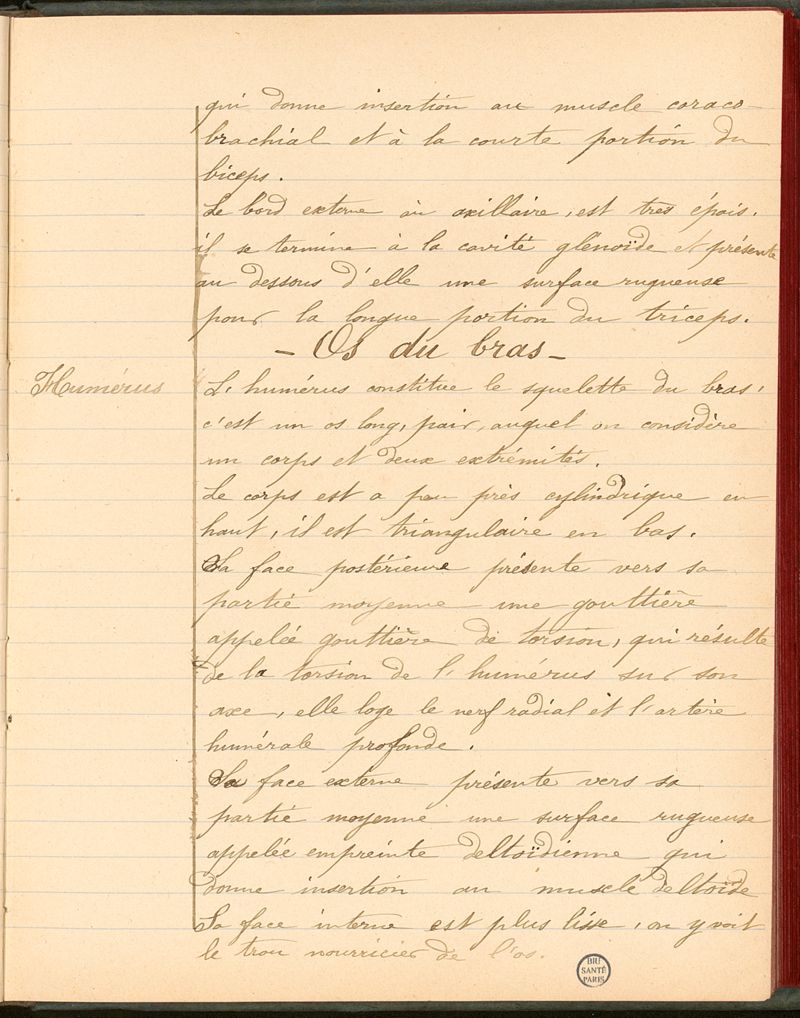 qui donne insertion au muscle coraco-
brachial et à la courte portion du
biceps.
Le bord externe ou axillaire, est très épais.
il se termine à la cavité glénoïde et présente
au dessous d'elle une surface rugueuse
pour la longue portion du triceps.
- Os du bras -
Humérus
L'humérus constitue le squelette du bras,
c'est un os long, pair, auquel on considère
un corps et deux extrémités.
Le corps est a peu près cylindrique en
haut, il est triangulaire en bas.
Sa face postérieure présente vers sa
partie moyenne une gouttière
appelée gouttière de torsion, qui résulte
de la torsion de l'humérus sur son
axe, elle loge le nerf radial et l'artère
humérale profonde.
Sa face externe présente vers sa
partie moyenne une surface rugueuse
appelée empreinte deltoïdienne qui
donne insertion au muscle deltoïde
Sa face interne est plus lisse, on y voit
le trou nourricier de l'os.
BIU
SANTÉ
PARIS